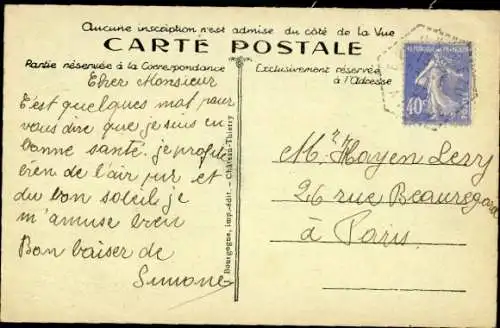 Aucune inscription n'est admise du côté de la Vue
CARTE POSTALE
Partie réservée à la Correspondance
Exclusivement réservée
à l'Adresse
REPUBLIQUE FRANÇAISE
40c
Cher Monsieur
C'est quelques mot pour
vous dire que je suis en
bonne santé. je profite
bien de l'air pur et
du bon soleil je
m'amuse bien
Bon baiser de
Simone
Bourgogne, imp.-édit. - Château-Thierry
M. Hayen Levy
26 rue Beauregard
à Paris